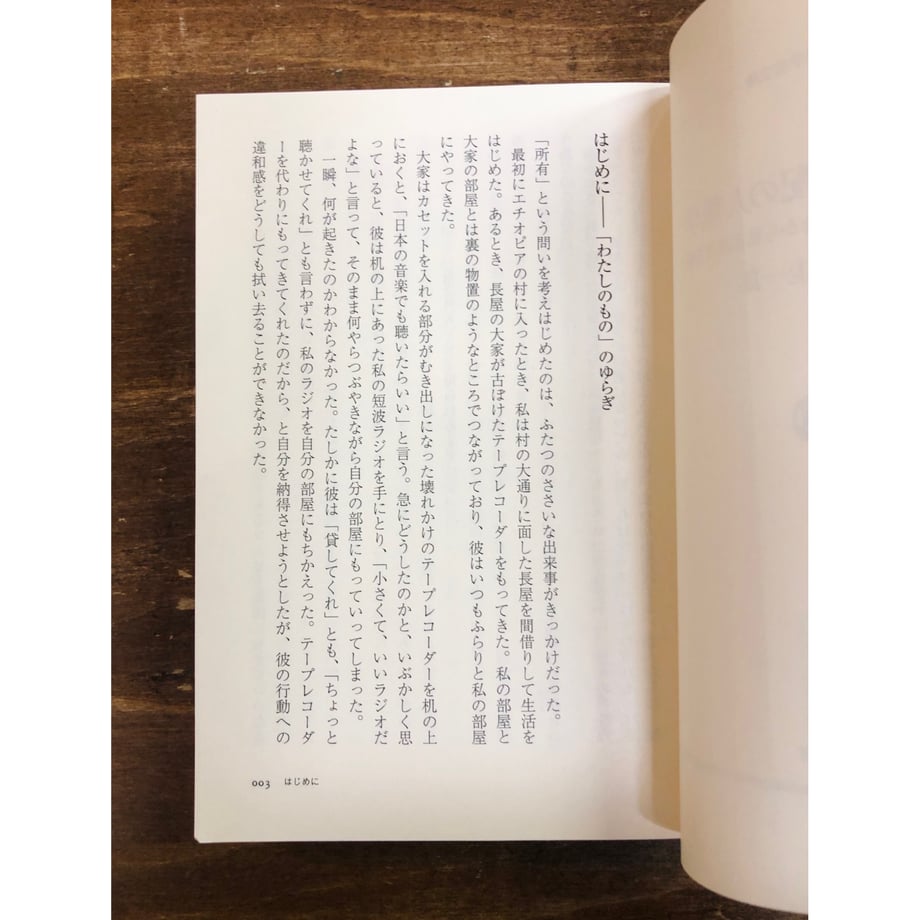 はじめに——「わたしのもの」のゆらぎ
「所有」という問いを考えはじめたのは、ふたつのささいな出来事がきっかけだった。
最初にエチオピアの村に入ったとき、私は村の大通りに面した長屋を間借りして生活を
はじめた。あるとき、長屋の大家が古ぼけたテープレコーダーをもってきた。私の部屋と
大家の部屋とは裏の物置のようなところでつながっており、彼はいつもふらりと私の部屋
にやってきた。
大家はカセットを入れる部分がむき出しになった壊れかけのテープレコーダーを机の上
におくと、「日本の音楽でも聴いたらいい」と言う。急にどうしたのかと、いぶかしく思
っていると、彼は机の上にあった私の短波ラジオを手にとり、「小さくて、いいラジオだ
よな」と言って、そのまま何やらつぶやきながら自分の部屋にもっていってしまった。
一瞬、何が起きたのかわからなかった。たしかに彼は「貸してくれ」とも、「ちょっと
聴かせてくれ」とも言わずに、私のラジオを自分の部屋にもちかえった。テープレコーダ
ーを代わりにもってきてくれたのだから、と自分を納得させようとしたが、彼の行動への
違和感をどうしても拭い去ることができなかった。
003 はじめに